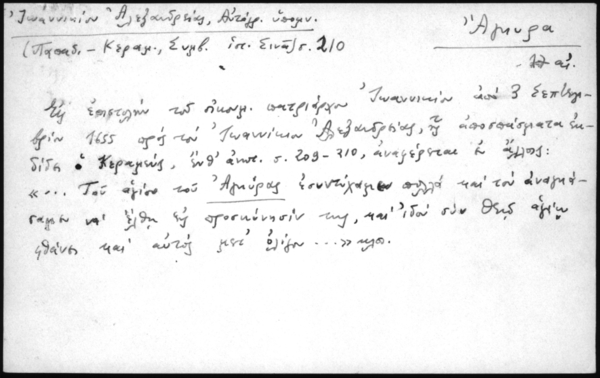 Ἰωαννικίου Ἀλεξανδρείας, Αὐτόγρ. ὑπομν.
(Παπαδ. - Κεραμ., Συμβ. ἱστ. Σινᾶ) σ. 210
Ἄγκυρα
ΙΖ αἰ.
Εἰς ἐπιστολὴν τοῦ οἰκουμ. πατριάρχου Ἰωαννικίου ἀπὸ 3 Σεπτεμ-
βρίου 1655 πρὸς τὸν Ἰωαννίκιον Ἀλεξανδρείας, ἧς ἀποσπάσματα ἐκ-
δίδει ὁ Κεραμεύς, ἔνθ' ἀνωτ. σ. 209-210, ἀναφέρεται ἐν ἄλλοις:
«... Τοῦ ἁγίου τοῦ Ἀγκύρας ἐσυντύχαμεν πολλὰ καὶ τὸν ἀναγκά-
σαμεν νὰ ἔλθῃ εἰς προσκύνησίν της, καὶ ἰδοὺ σὺν Θεῷ ἁγίῳ
φθάνει καὶ αὐτὸς μετ' ὀλίγον ...» κλπ.